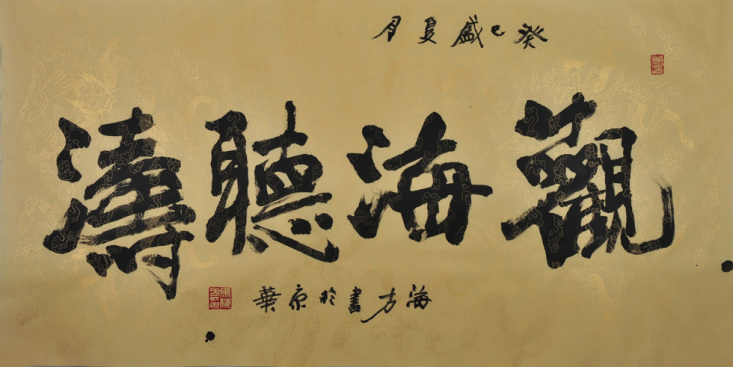 癸巳盛夏月
觀海聽濤
海方書於京華